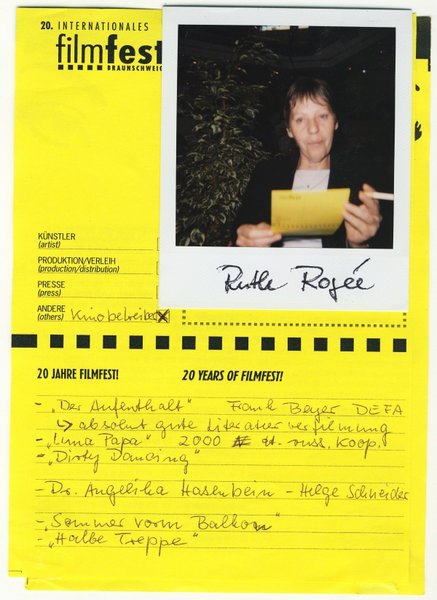 20. INTERNATIONALES
filmfest
BRAUNSCHWEIG
Ruth Rogée
KÜNSTLER
(artist)
PRODUKTION/VERLEIH
(production/distribution)
PRESSE
(press)
ANDERE
(others) Kinobetreiber
20 JAHRE FILMFEST! 20 YEARS OF FILMFEST!
- "Der Aufenthalt" Frank Beyer DEFA
↳ absolut gute Literaturverfilmung
- "Luna Papa" 2000 dt.-russ. Koop.
- "Dirty Dancing"
- Dr. Angelika Hasenbein - Helge Schneider
- "Sommer vorm Balkon"
- "Halbe Treppe"